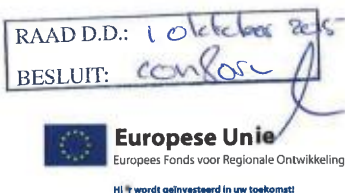 RAAD D.D.: 1 oktober 2015
BESLUIT: conform
Europese Unie
Europees Fonds voor Regionale Ontwikkeling
wordt geïnvesteerd in uw toekomst!